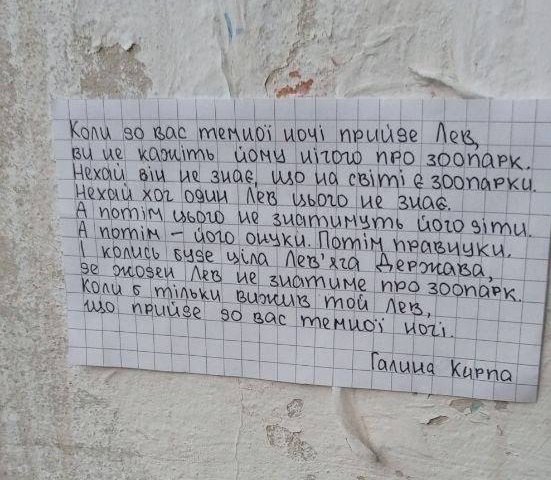 Коли до вас темної ночі прийде Лев,
ви не кажіть йому нічого про зоопарк.
Нехай він не знає, що на світі є зоопарки.
Нехай хоч один Лев цього не знає.
А потім цього не знатимуть його діти.
А потім – його онуки. Потім правнуки.
І колись буде ціла Лев'яча Держава,
де жоден Лев не знатиме про зоопарк.
Коли б тільки вижив той Лев,
що прийде до вас темної ночі.
Галина Кирпа